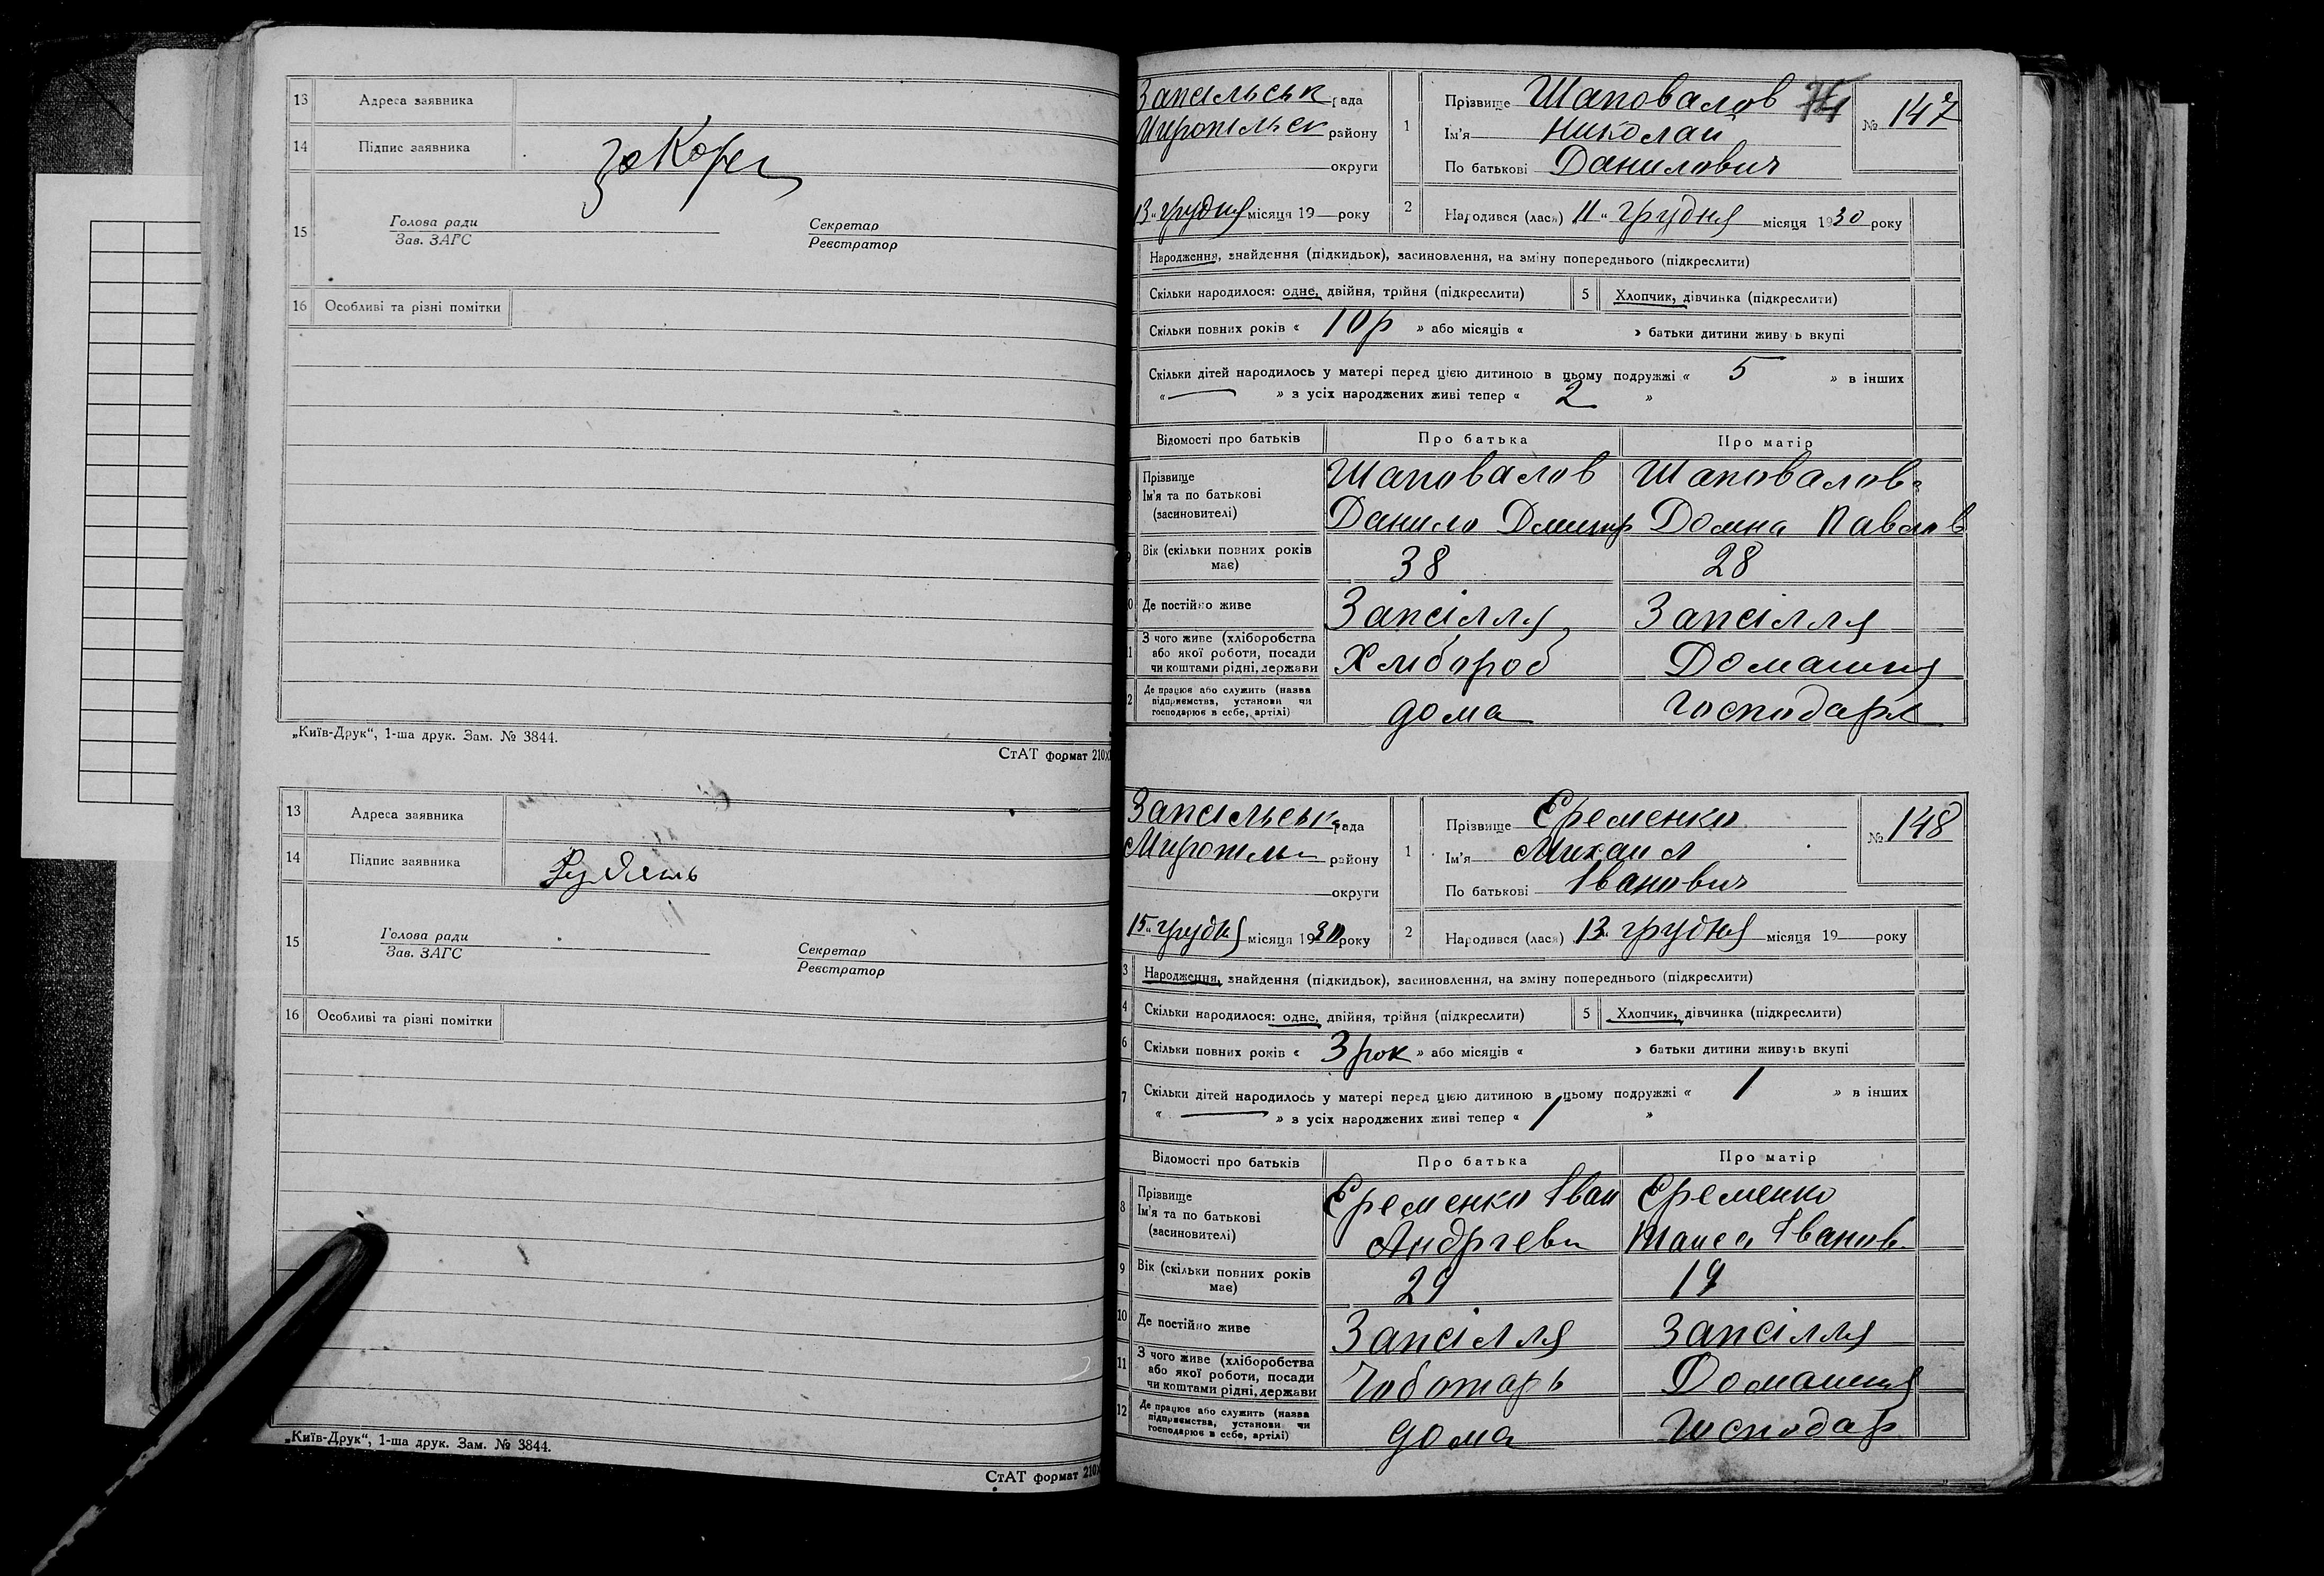 13 Адреса заявника
14 Підпис заявника
15 Голова ради
Зав. ЗАГС
Секретар
Реєстратор
16 Особливі та різні помітки
„Київ-Друк“, 1-ша друк. Зам. № 3844.
СтАТ формат 210Х
13 Адреса заявника
14 Підпис заявника
15 Голова ради
Зав. ЗАГС
Секретар
Реєстратор
16 Особливі та різні помітки
„Київ-Друк“, 1-ша друк. Зам. № 3844.
СтАТ формат 210
Запсільськ рада
Миропільск району
округи
13 „ грудня місяця 19 року
1 Прізвище Шаповалов
Ім'я Николаи
По батькові Данилович
№ 147
2 Народився (лася) 11 „ грудня місяця 1930 року
Народження, знайдення (підкидьок), засиновлення, на зміну попереднього (підкреслити)
Скільки народилося: одне, двійня, трійня (підкреслити) 5 Хлопчик, дівчинка (підкреслити)
Скільки повних років « 10 р » або місяців « » батьки дитини живуть вкупі
Скільки дітей народилось у матері перед цією дитиною в цьому подружжі « 5 » в інших
« — » з усіх народжених живі тепер « 2 »
Відомості про батьків Про батька Про матір
Прізвище Шаповалов Шаповалов
Ім'я та по батькові
(засиновителі) Данило Дмитр Домна Павлов
9 Вік (скільки повних років має) 38 28
0 Де постійно живе Запсілля Запсілля
1 З чого живе (хліборобства
або якої роботи, посади
чи коштами рідні, держави Хлібороб Домашня
2 Де працює або служить (назва
підприємства, установи чи
господарює в себе, артілі) дома Господарк
Запсільськ рада
Миропільс району
округи
15 „ грудня місяця 1930 року
1 Прізвище Єременко
Ім'я Михаил
По батькові Іванович
№ 148
2 Народився (лася) 13 „ грудня місяця 19 — року
3 Народження, знайдення (підкидьок), засиновлення, на зміну попереднього (підкреслити)
4 Скільки народилося: одне, двійня, трійня (підкреслити) 5 Хлопчик, дівчинка (підкреслити)
6 Скільки повних років « 3 рок » або місяців « » батьки дитини живуть вкупі
7 Скільки дітей народилось у матері перед цією дитиною в цьому подружжі « 1 » в інших
« — » з усіх народжених живі тепер « 1 »
Відомості про батьків Про батька Про матір
8 Прізвище Єременко Іван Єременко
Ім'я та по батькові
(засиновителі) Андргеви Іванов
9 Вік (скільки повних років має) 29 19
10 Де постійно живе Запсілля Запсілля
11 З чого живе (хліборобства
або якої роботи, посади
чи коштами рідні, держави Чоботарь Домашня
12 Де працює або служить (назва
підприємства, установи чи
господарює в себе, артілі) дома Господар